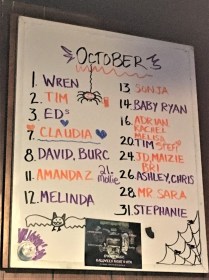 OCTOBER
1. WREN
2. TIM
3. EDS
7. CLAUDIA
8. DAVID, BURC
11. AMANDA Z
21. Mollie
12. MELINDA
13 SONJA
14 BABY RYAN
16 ADRIAN
RACHEL
MELISA
20 TIM
STEFF
24 JD, MAIZIE
BRI
26 ASHLEY, CHRIS
28 MR SARA
31 STEPHANIE